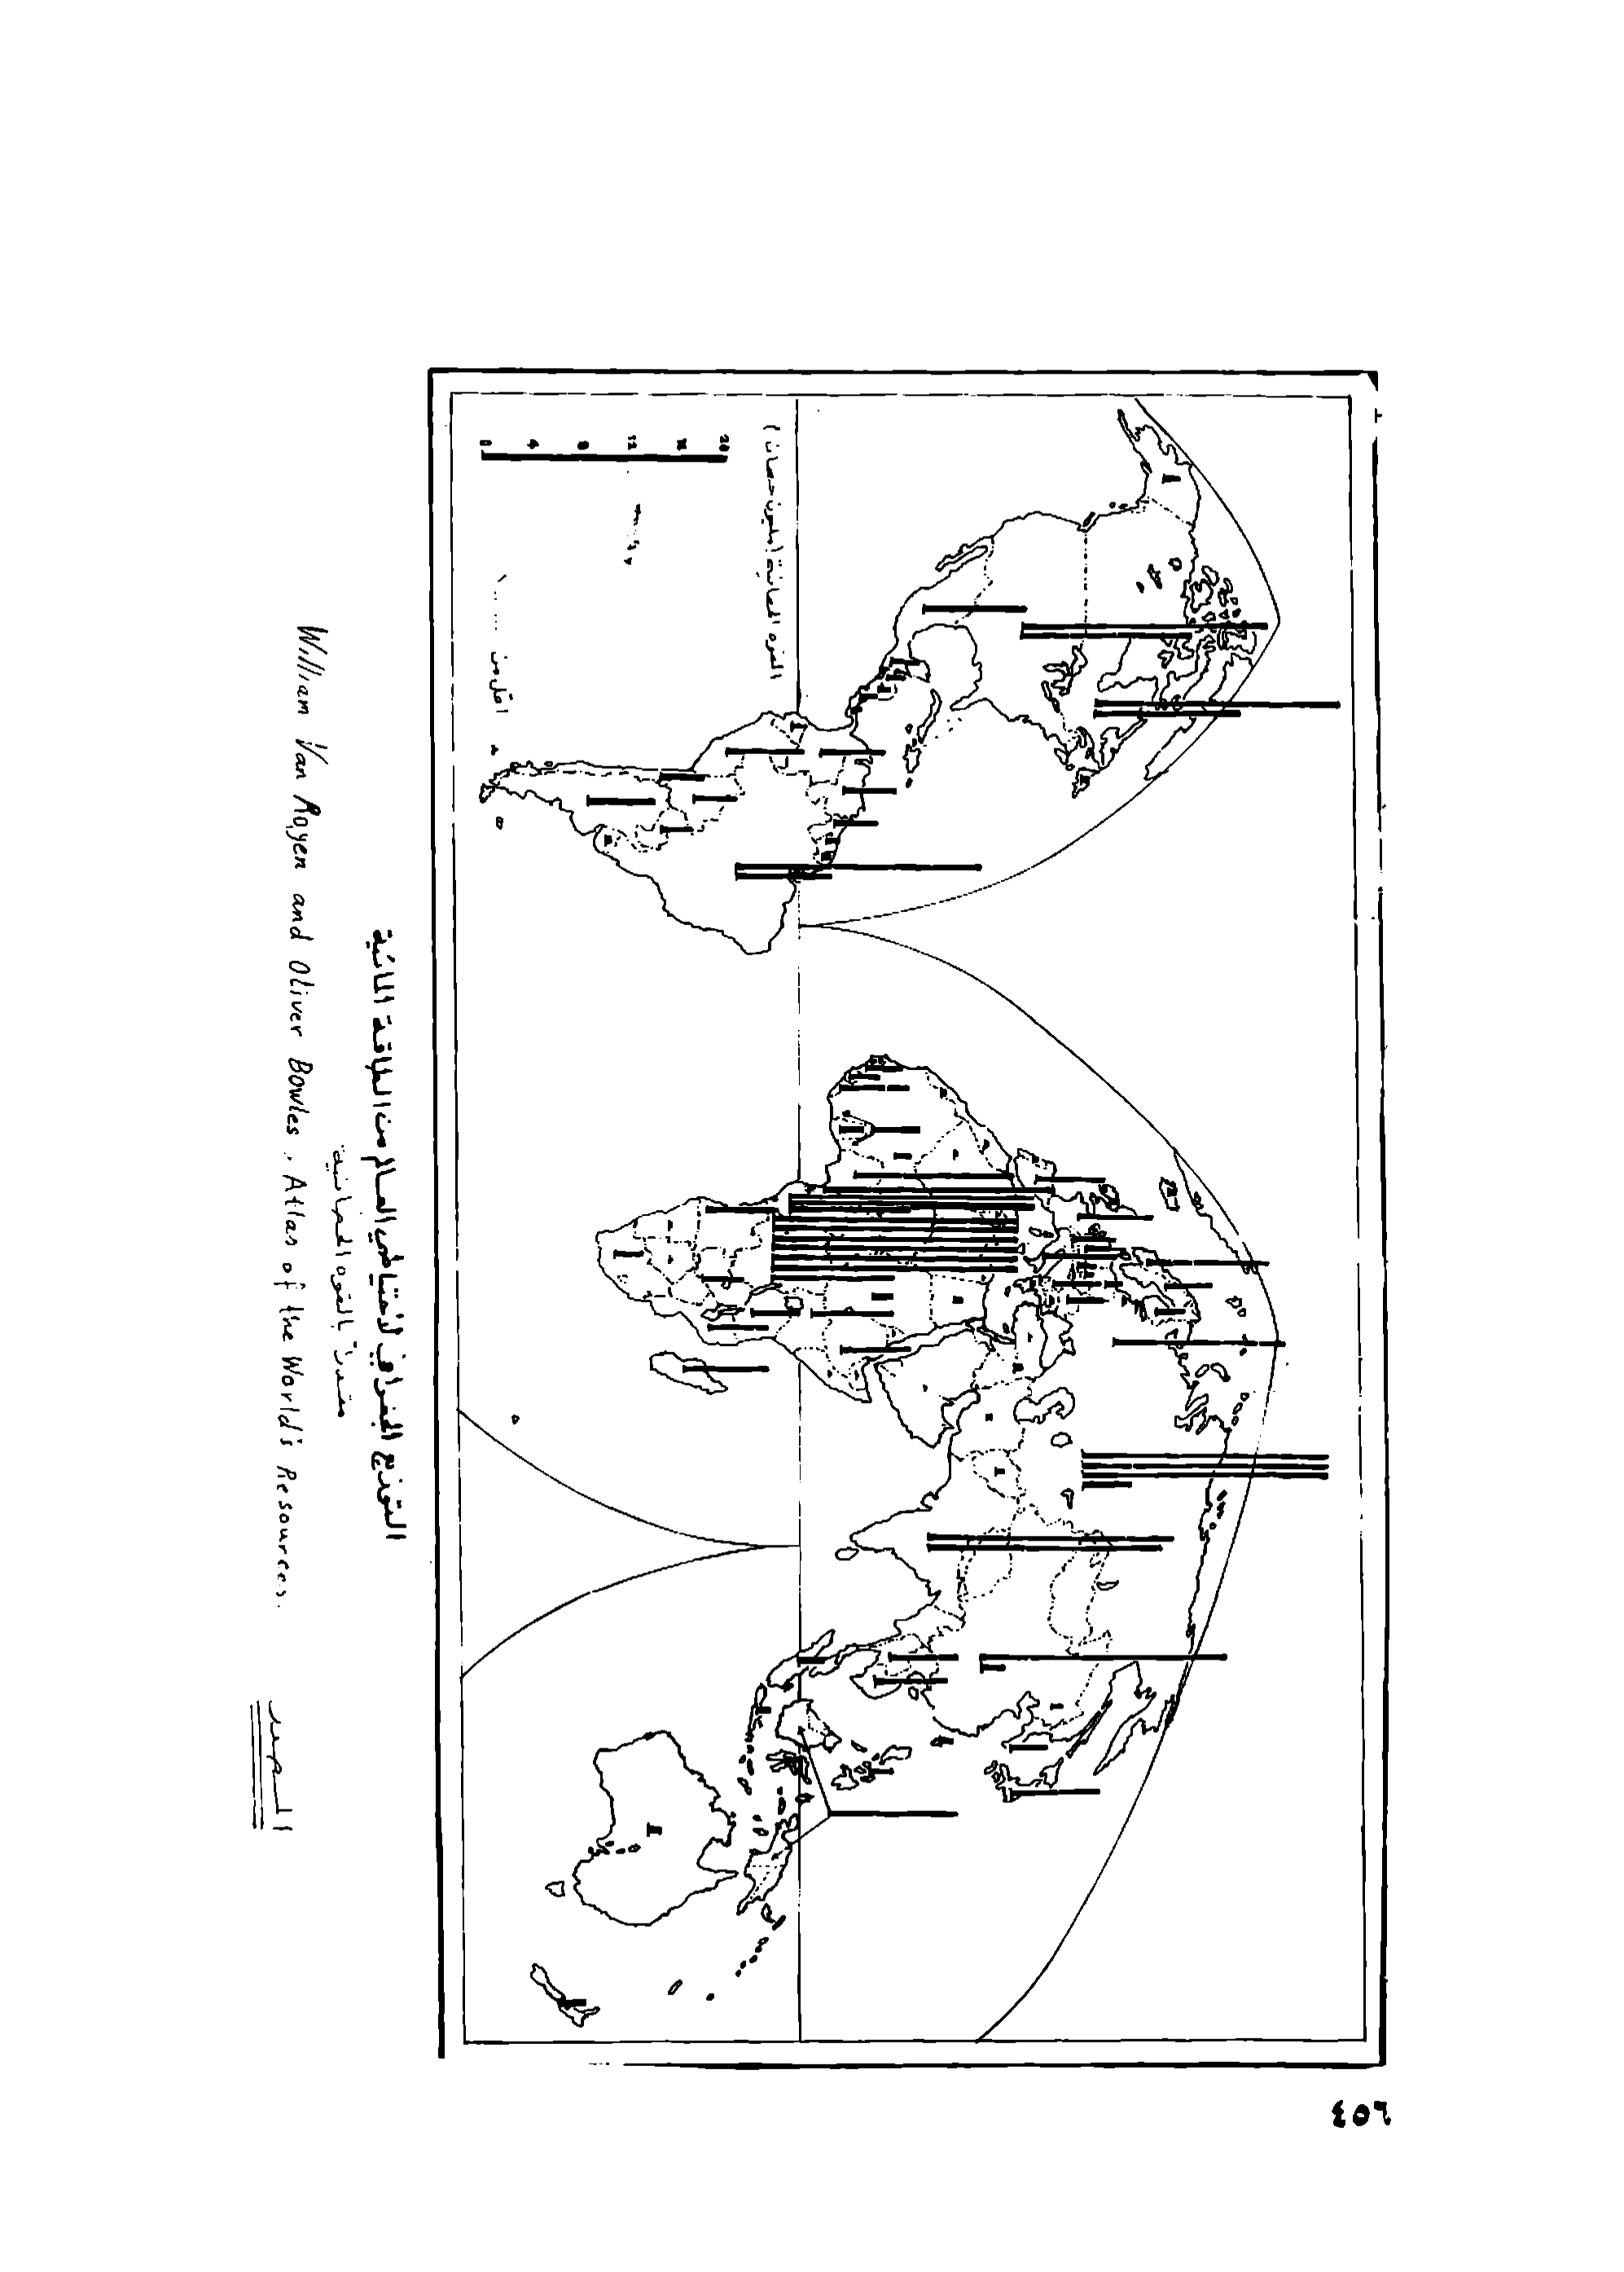 القوه الحصانية (مليون حصانا)
0 4 8 12 16 20
اقل من
التوزيع الجغرافي لأحتياطي العالم من الطاقة المائية
مقدراً بالقوه الحصانية
William Van Royen and Oliver Bowles, Atlas of the World's Resources.
المصدر
٤٥٦